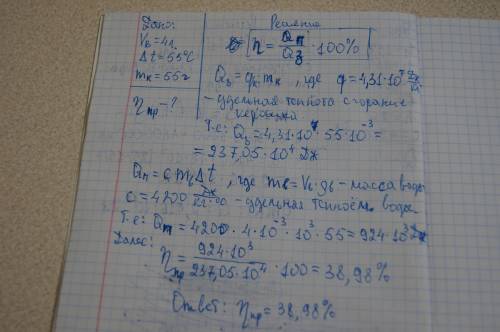 Дано:
Vв = 4л.
Δt = 55°C
mк = 55г
ηпр - ?
Решение
η = Qп/Qз · 100%
Qз = qк mк, где q = 4,31·10⁷ Дж/кг
- удельная теплота сгорания
керосина
Т.е: Qз = 4,31·10⁷·55·10⁻³ =
= 237,05·10⁴ Дж
Qп = c mв Δt, где mв = Vв·ρв - масса воды
c = 4200 Дж/кг·°C - удельная теплоём. воды
Т.е: Qп = 4200·4·10⁻³·10³·55 = 924·10³ Дж
Далее:
ηпр = 924·10³/237,05·10⁴ · 100 = 38,98%
Ответ: ηпр = 38,98%